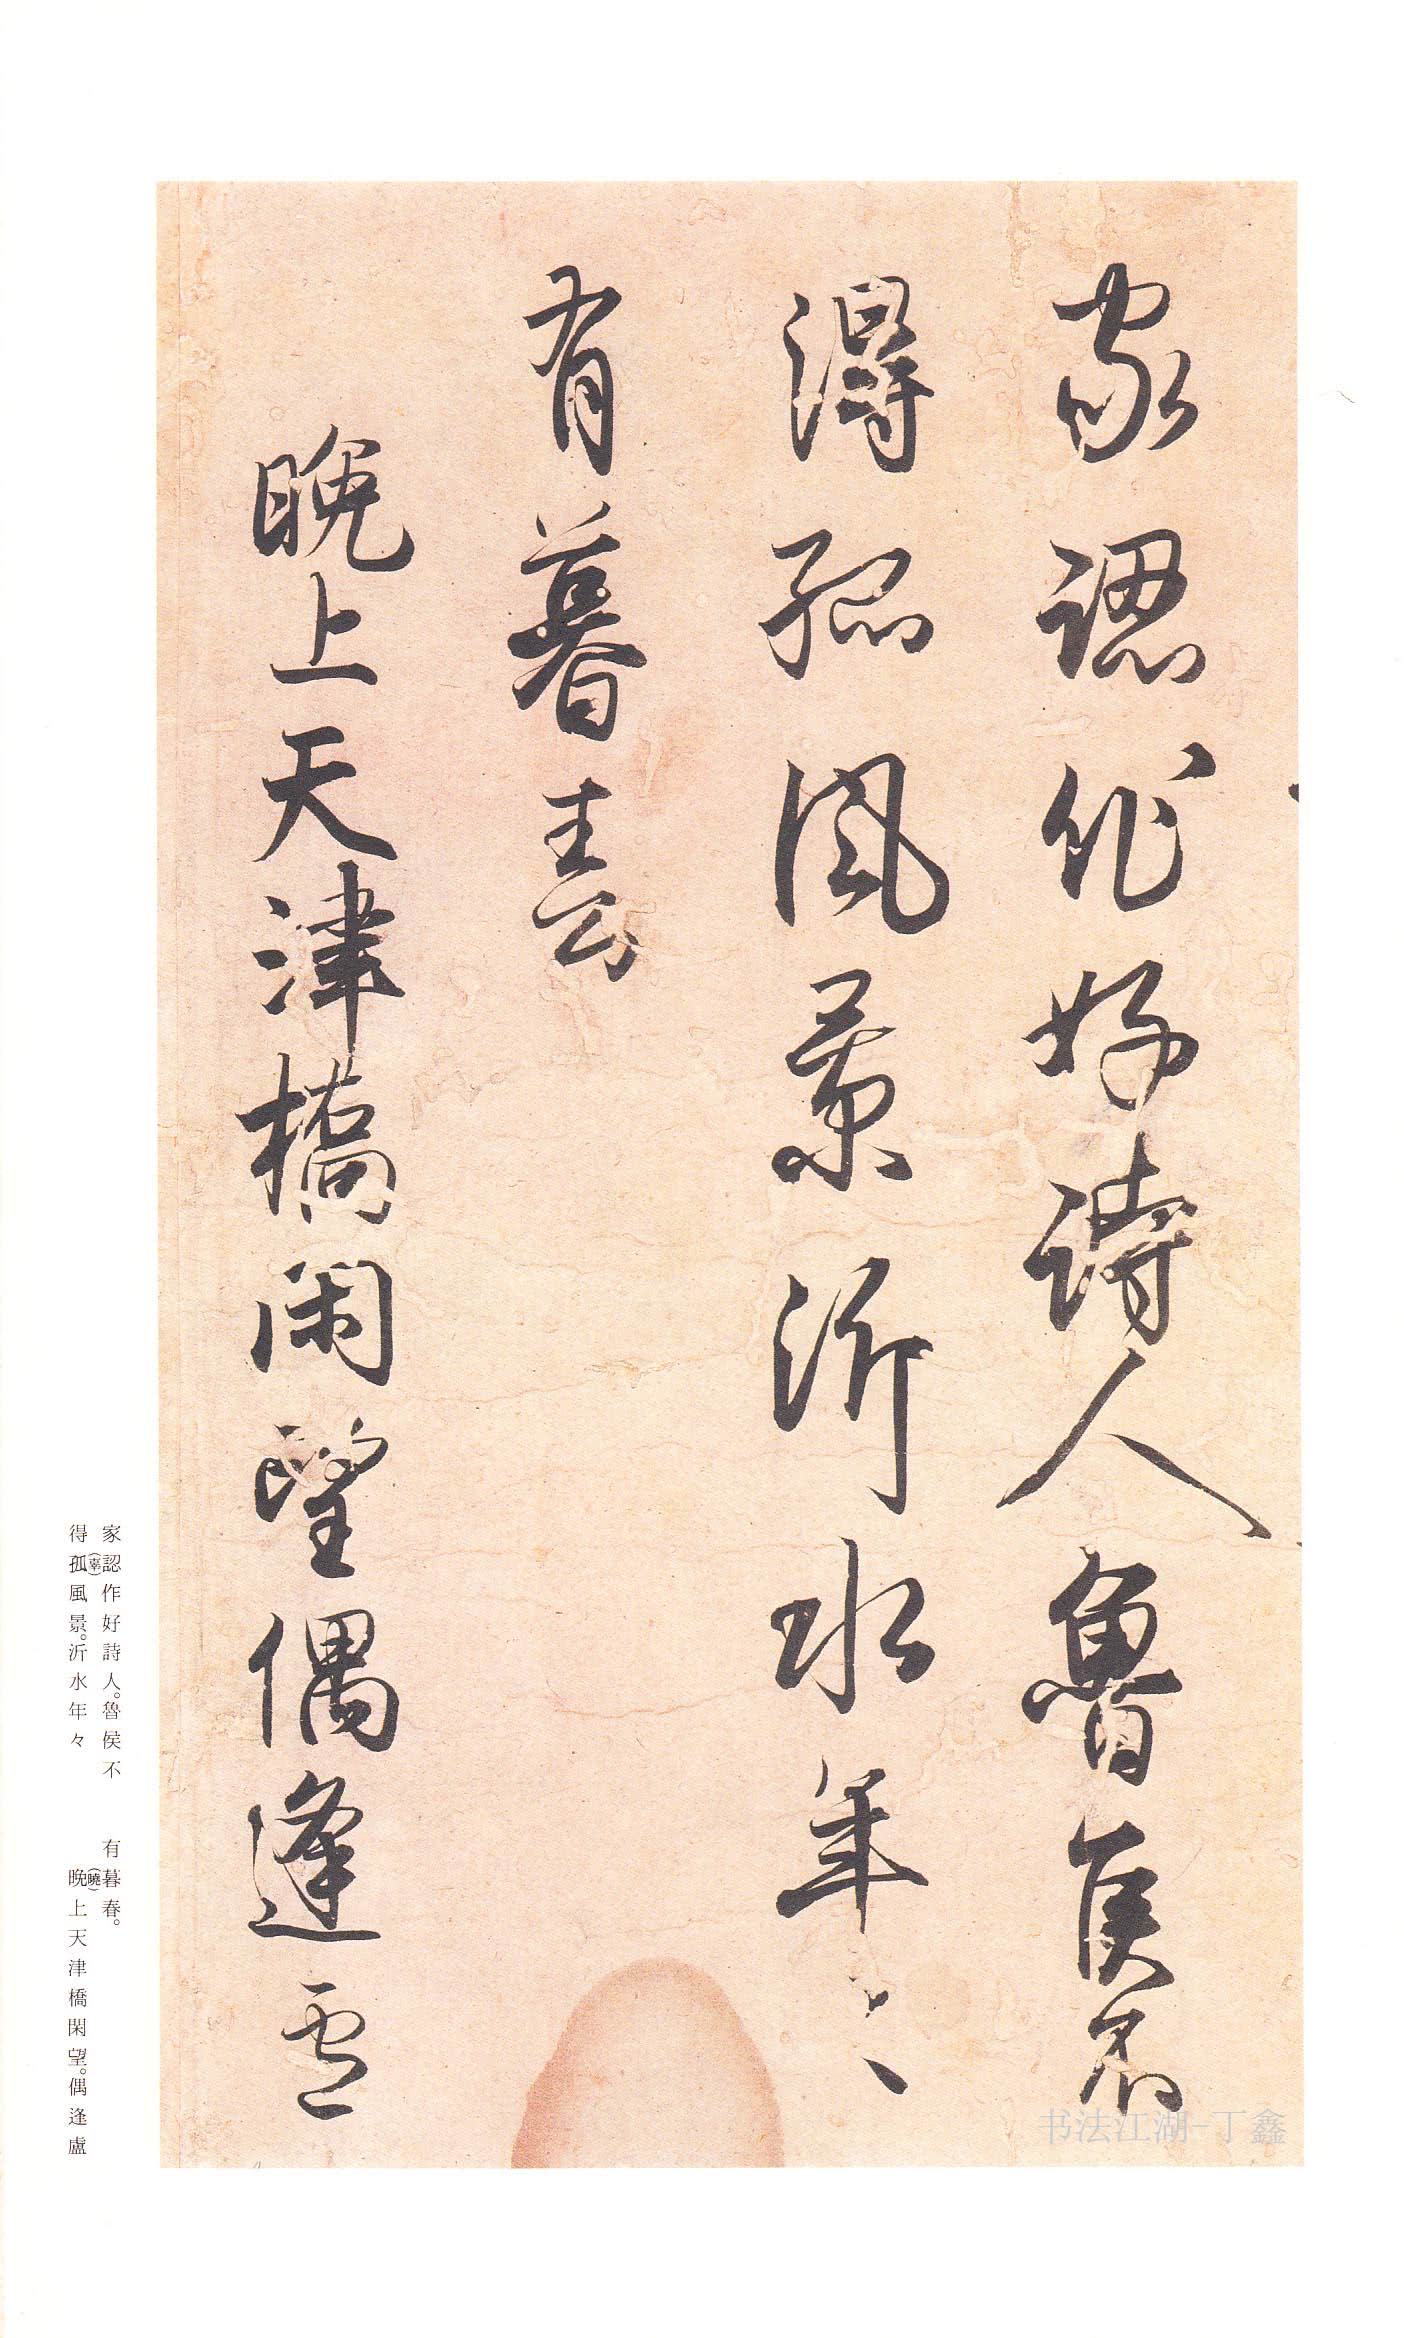 家認作好詩人魯侯不
得孤風景沂水年々
有暮春
晩上天津橋閑望偶逢盧
家認作好詩人。魯侯不
得孤(辜)風景。沂水年々
有暮春。
晩(曉)上天津橋閑望。偶逢盧
书法江湖-丁鑫